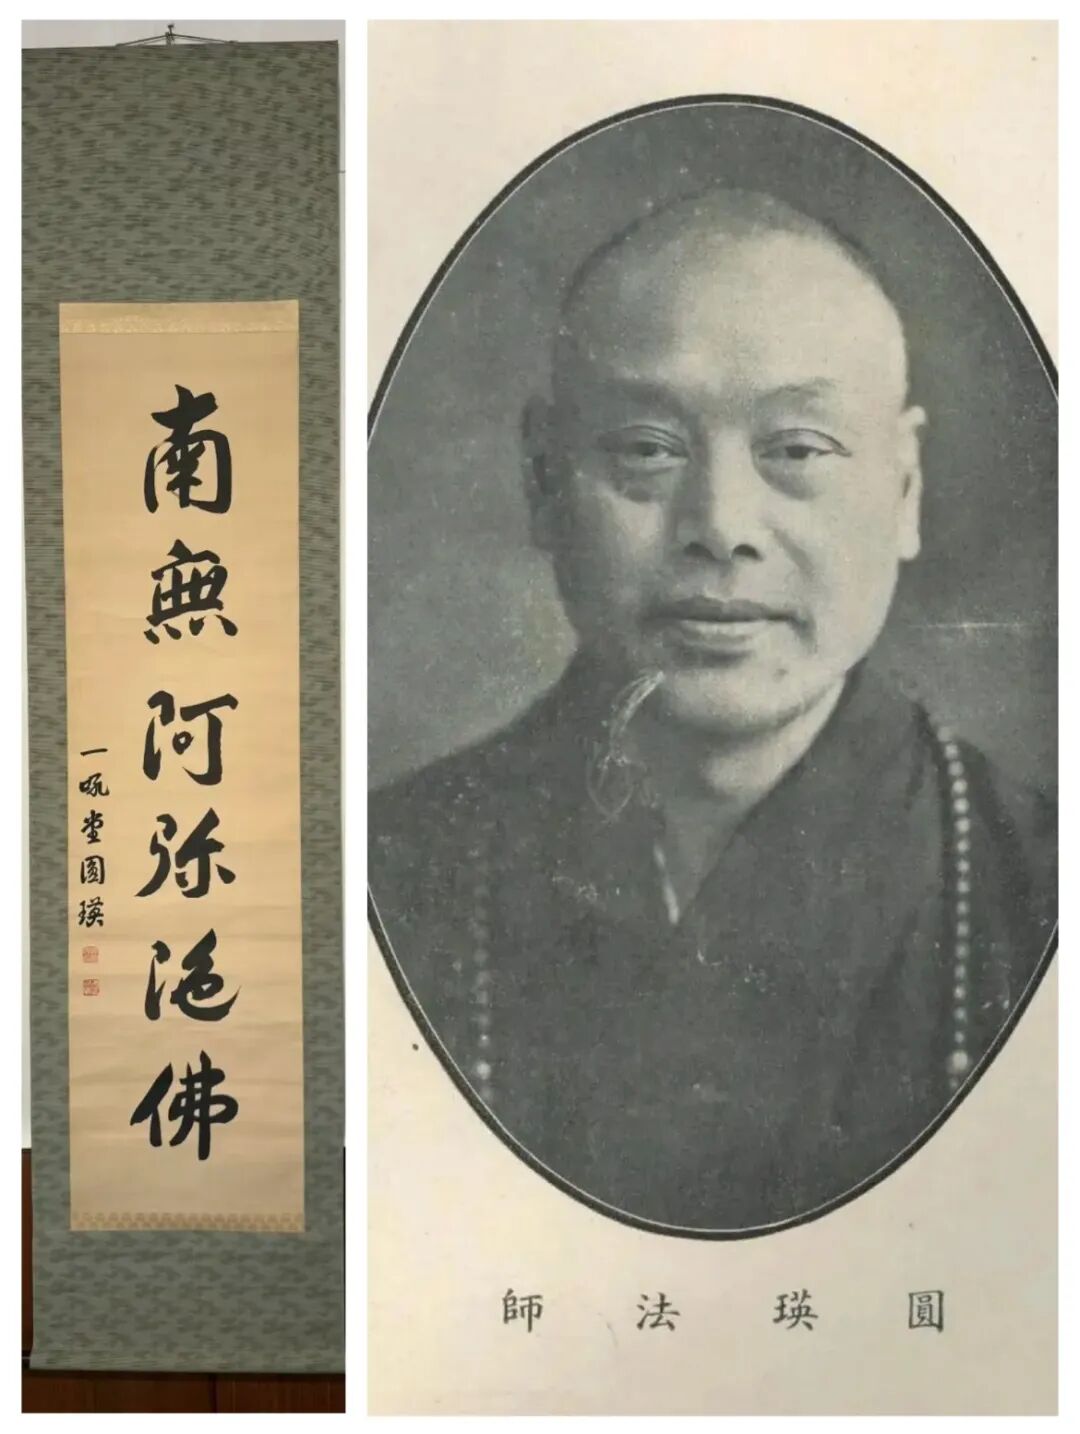 南無阿弥陀佛
一吼堂圓瑛
圓瑛法師